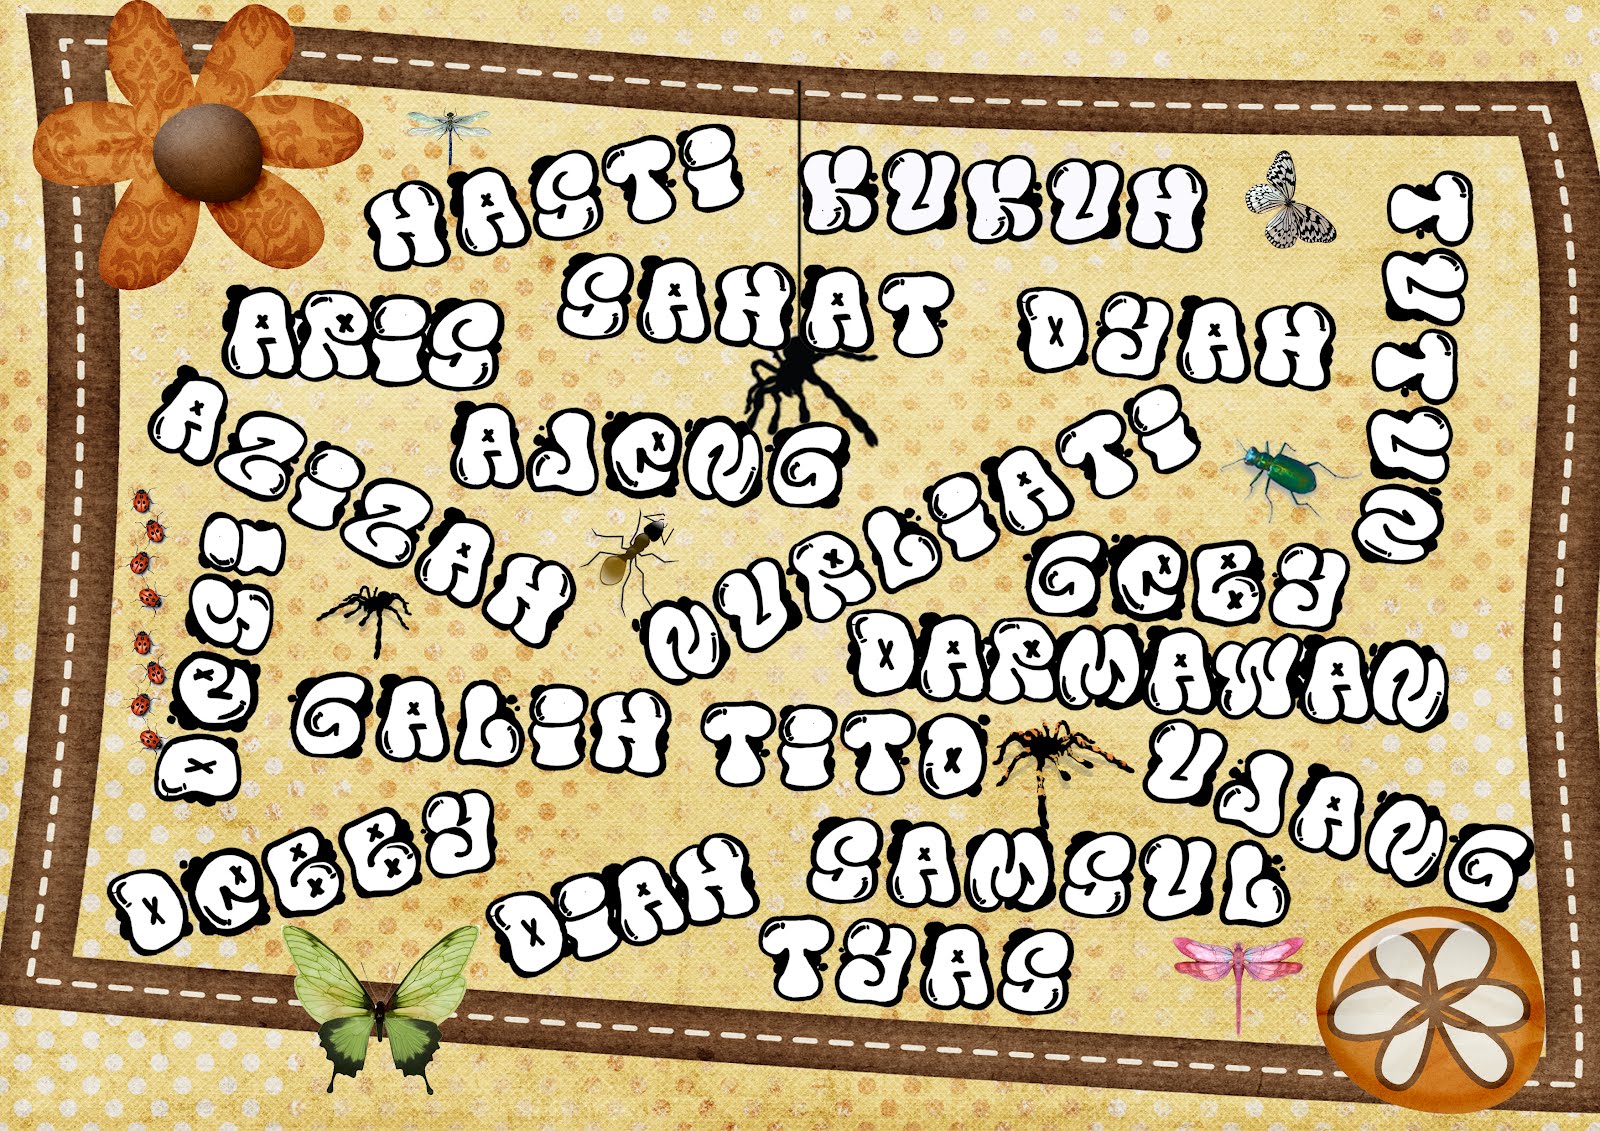 HASTI
KUKUH
TUTUN
ARIS
SAHAT
DYAH
AZIZAH
AJENG
NURLIATI
GEBY
DESI
DARMAWAN
GALIH
TITO
UJANG
DEBBY
DIAH
SAMSUL
TYAS